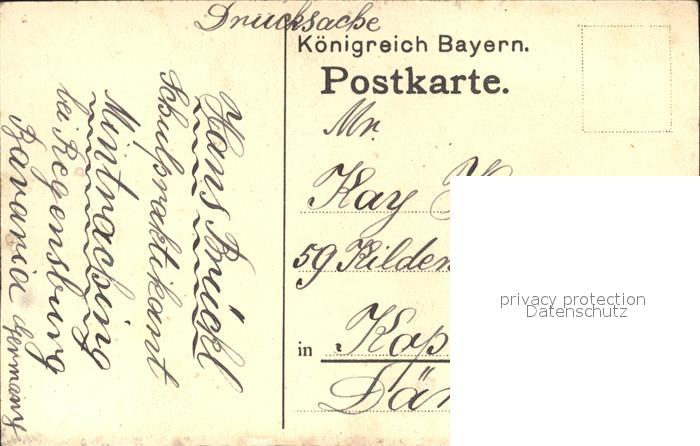 Drucksache
Königreich Bayern.
Postkarte.
Mr.
Kay
59 Kilden
in Kop
Dän
privacy protection
Datenschutz
Hans Brückl
Schulpraktikant
Mintraching
bei Regensburg
Bavaria Germany